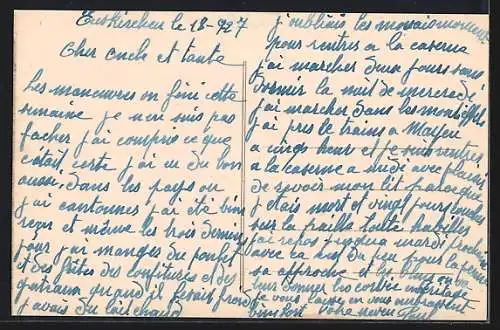 Euskirchen le 18-927
Cher oncle et tante
Les manœuvres on fini cette
semaine je n'en suis pas
facher j'ai compris ce que
c'était certe j'ai eu du bon
aussi, dans les pays ou
j'ai cantonnes j'ai été bien
reçus et même les trois derniers
jour j'ai manges du poulet
et des pâtes des confitures et des
gateaux quand il fesait froid
j'avais du lait chaud
j'oubliais les mauvais moment
pour rentrer a la caserne
j'ai marcher deux jours sans
dormir la nuit de mercredi
j'ai marcher dans les mont Eiffel
j'ai pres le trains a Mayen
a cinqs heur et je suis rentrer
a la caserne a midi avec plaisir
de revoir mon lit parceque
j'étais mort et vingt jours coucher
sur la pailla toute habilles
j'ai repos jusqua mardi prochain
avec ca pas du feu pour la ferme
sa approche et les
leur donner
je vous laisse en vous embrassent
bien fort votre neveu Paul